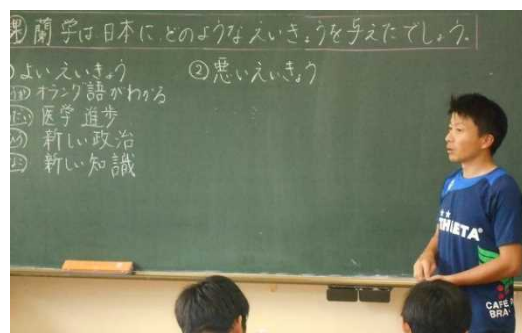 課 蘭学は日本に、どのようなえいきょうを与えたでしょう。
よいえいきょう
②悪いえいきょう
オランダ語がわかる
医学 進歩
新しい政治
新しい知識
ATHLETA
CAFE
BRA